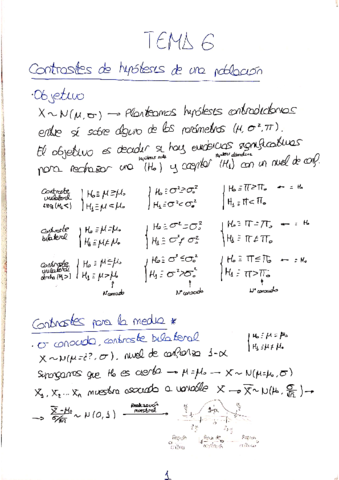 TEMA 6
Contrastes de hipótesis de una población
· Objetivo
X ~ N(μ, σ) → Planteamos hipótesis contradictorias
entre sí sobre alguno de los parámetros (μ, σ², π).
El objetivo es decidir si hay evidencias significativas
para rechazar una (H₀) y aceptar (H₁) con un nivel de conf.
Contraste unilateral { H₀ ≡ μ ≥ μ₀ { H₀ ≡ σ² ≥ σ₀² { H₀ ≡ π ≥ π₀
{ H₁ ≡ μ < μ₀ { H₁ ≡ σ² < σ₀² { H₁ ≡ π < π₀
Contraste bilateral { H₀ ≡ μ = μ₀ { H₀ ≡ σ² = σ₀² { H₀ ≡ π = π₀
{ H₁ ≡ μ ≠ μ₀ { H₁ ≡ σ² ≠ σ₀² { H₁ ≡ π ≠ π₀
Contraste unilateral { H₀ ≡ μ ≤ μ₀ { H₀ ≡ σ² ≤ σ₀² { H₀ ≡ π ≤ π₀
{ H₁ ≡ μ > μ₀ { H₁ ≡ σ² > σ₀² { H₁ ≡ π > π₀
Nº conocido Nº conocido Nº conocido
Contrastes para la media *
· σ conocida, contraste bilateral { H₀ ≡ μ = μ₀
{ H₁ ≡ μ ≠ μ₀
X ~ N(μ = ¿?, σ), nivel de confianza 1-α
Supongamos que H₀ es cierta → μ = μ₀ → X ~ N(μ₀, σ)
X₁, X₂ ... Xn muestra asociada a variable X → X̄ ~ N(μ₀, σ/√n) →
→ X̄ - μ₀ / σ/√n ~ N(0, 1) 1-α
Región Región
1